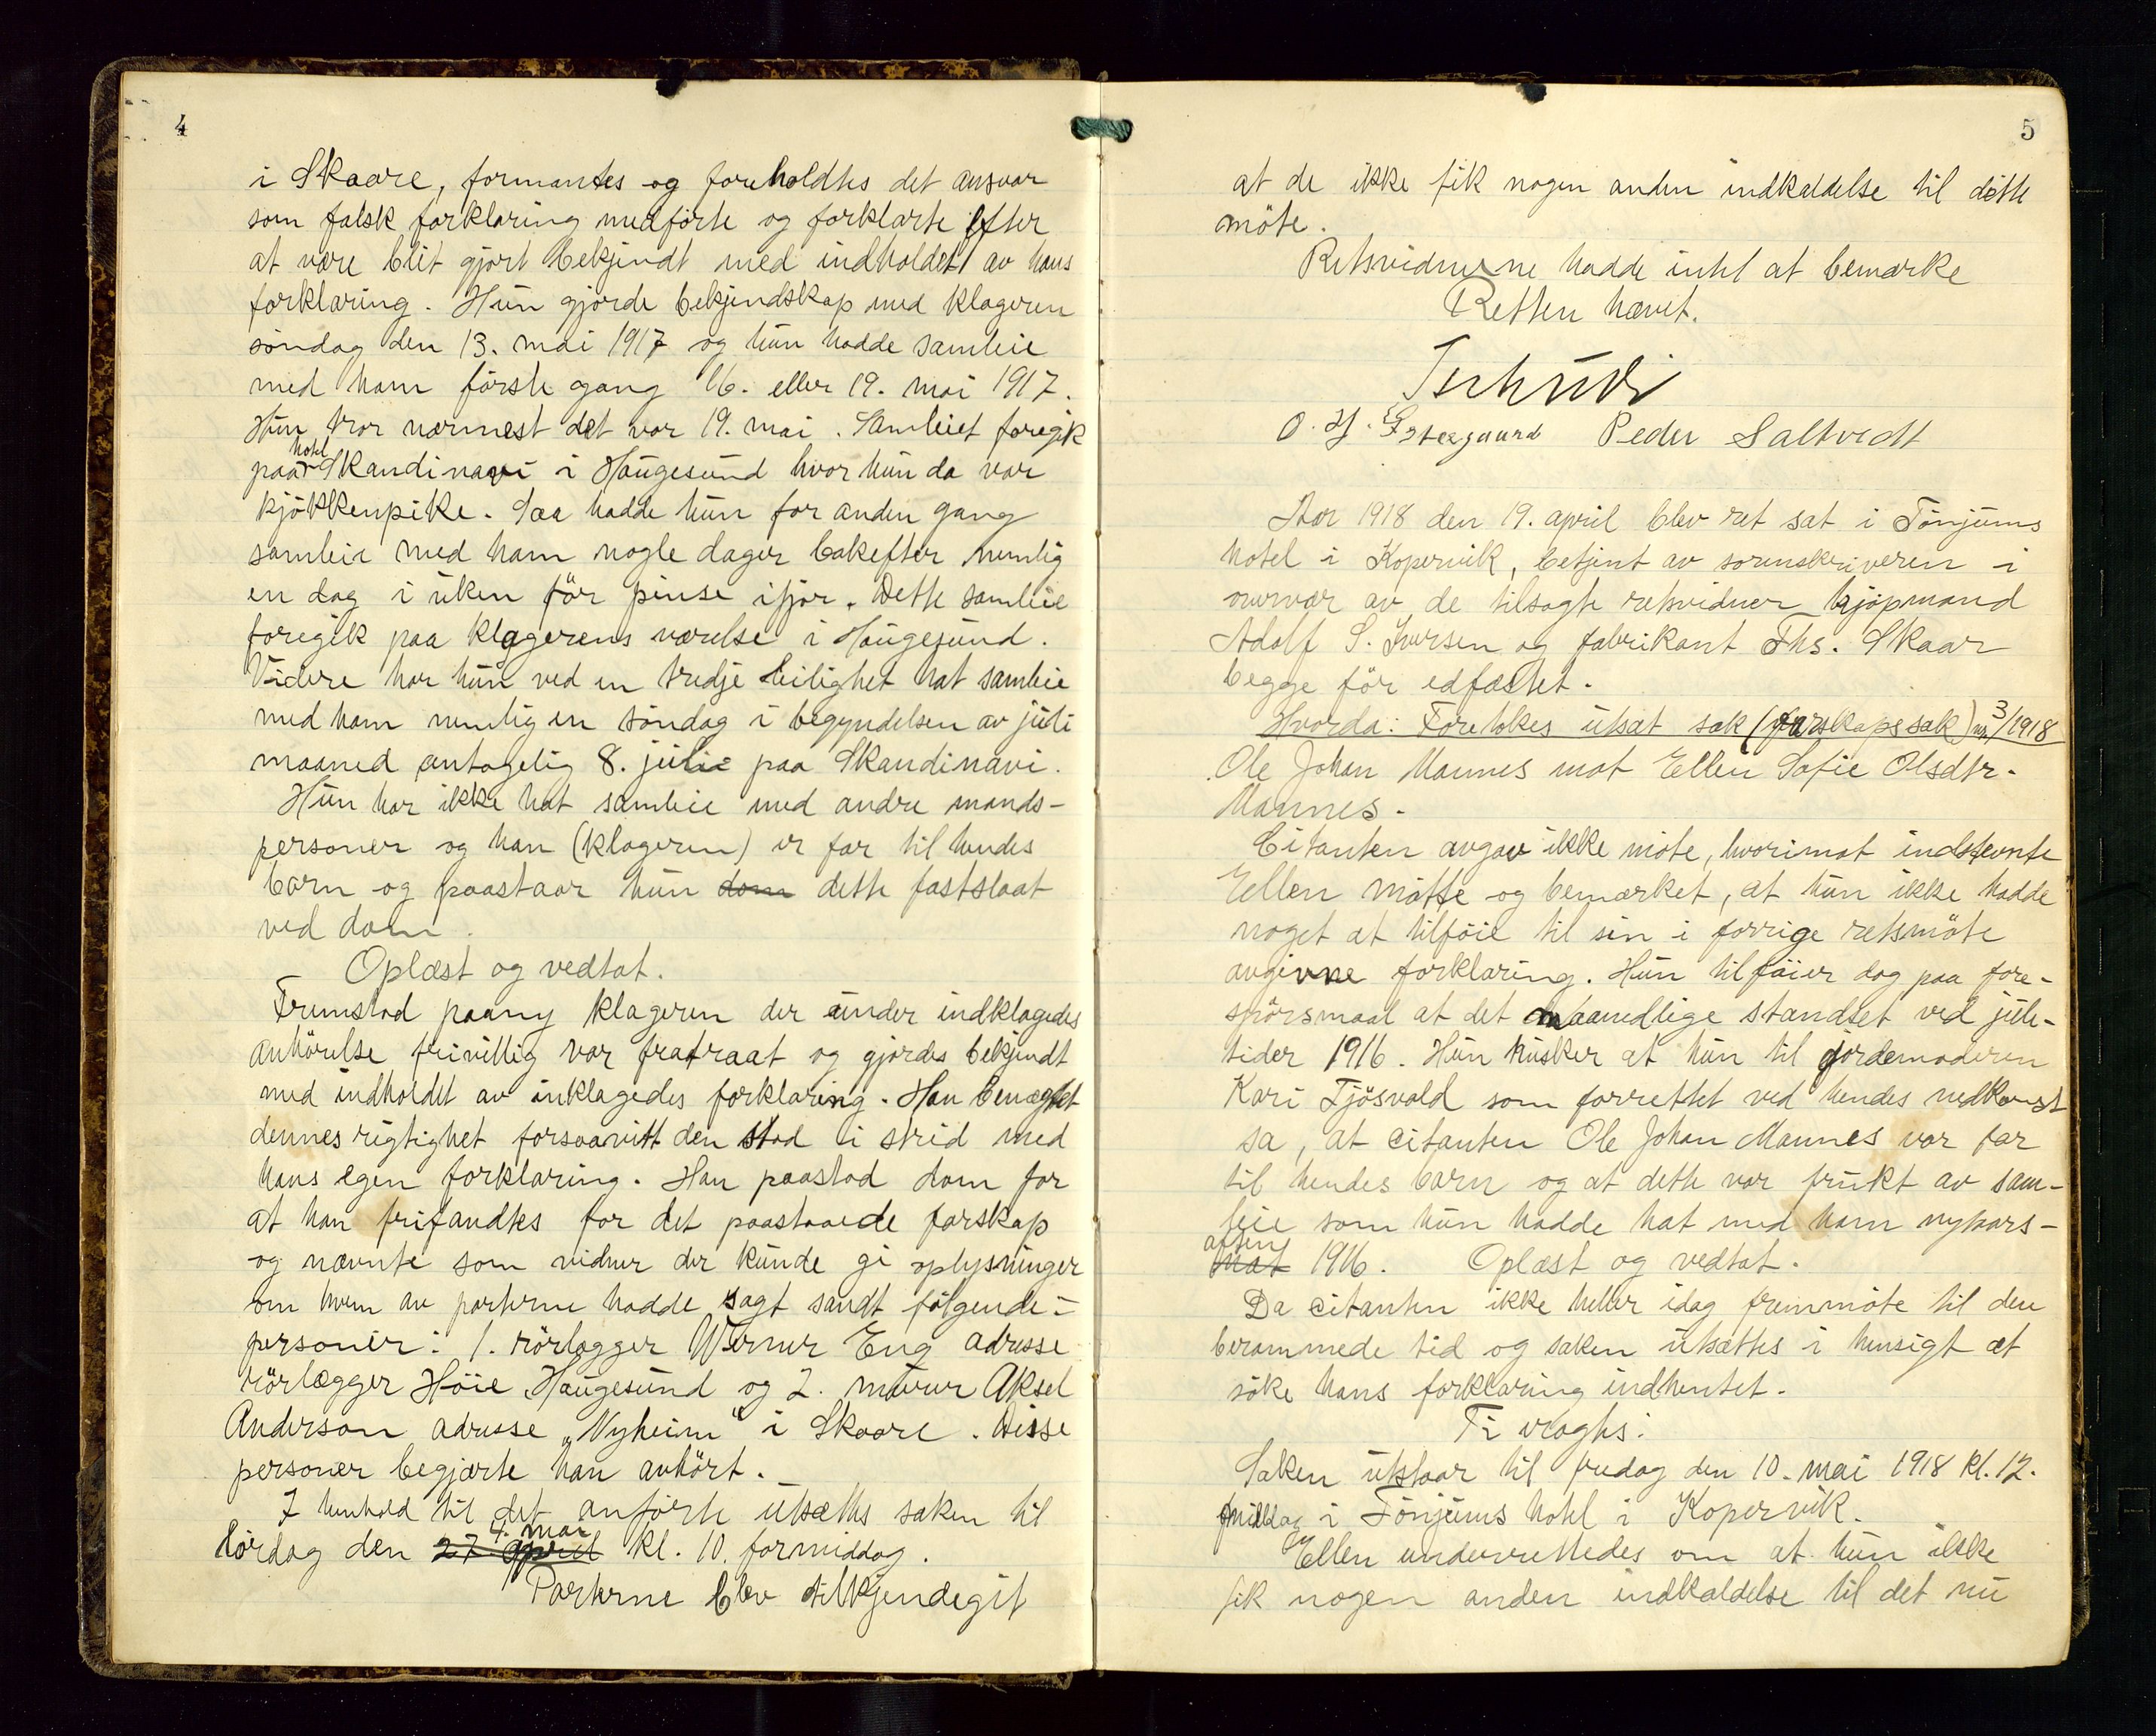 4
i Skaare, formantes og foreholdtes det ansvar
som falsk forklaring medförte og forklarte efter
at være blit gjort bekjendt med indholdet av hans
forklaring. Hun gjorde bekjendskap med klageren
söndag den 13. mai 1917 og hun hadde samleie
med ham förste gang 16. eller 19. mai 1917.
Hun tror nærmest det var 19. mai. Samleiet foregik
paa hotel Skandinavi i Haugesund hvor hun da var
kjökkenpike. Saa hadde hun for anden gang
samleie med ham nogle dager bakefter nemlig
en dag i uken för pinse ifjor. Dette samleie
foregik paa klagerens værelse i Haugesund.
Videre har hun ved en tredje leilighet hat samleie
med ham nemlig en söndag i begyndelsen av juli
maaned antagelig 8. juli paa Skandinavi.
Hun har ikke hat samleie med andre mands-
personer og han (klageren) er far til hendes
barn og paastaar hun dom dette fastslaat
ved dom.
Oplæst og vedtat.
Fremstod paany klageren der under indklagedes
anhörelse frivillig var fratraat og gjordes bekjendt
med indholdet av inklagedes forklaring. Han benægtet
dennes rigtighet forsaavitt den stod i strid med
hans egen forklaring. Han paastod dom for
at han frifandtes for det paastaaede farskap
og nævnte som vidner der kunde gi oplysninger
om hvem av parterne hadde sagt sandt fölgende
personer: 1. rörlægger Werner Eng adresse
rörlægger Höie, Haugesund og 2. murer Aksel
Anderson adresse „Nyheim" i Skaare. Disse
personer begjærte han avhört.
I henhold til det anförte utsættes saken til
lördag den 27. april 4. mai kl. 10. formiddag.
Parterne blev tilkjendegit
5
at de ikke fik nogen anden indkaldelse til dette
möte.
Retsvidnerne hadde intet at bemærke
Retten hævet.
Tschudi
O. H. Östergaard Peder Saltvedt
Aar 1918 den 19. april blev ret sat i Tönjums
hotel i Kopervik, betjent av sorenskriveren i
nærvær av de tilsagte retsvidner kjöpmand
Adolf S. Iversen og fabrikant Ths. Skaar
begge för edfæstet.
Hvorda: Foretokes utsat sak (farskapssak) nr. 3/1918
Ole Johan Mannes mot Ellen Sofie Olsdtr.
Mannes.
Citanten avgav ikke möte, hvorimot indstevnte
Ellen mötte og bemærket, at hun ikke hadde
noget at tilföie til sin i forrige retsmöte
avgivne forklaring. Hun tilföier dog paa fore-
spörsmaal at det maanedlige standset ved jule-
tider 1916. Hun husker at hun til jordemoderen
Kari Tjösvold som forrettet ved hendes nedkomst
sa, at citanten Ole Johan Mannes var far
til hendes barn og at dette var frukt av sam-
leie som hun hadde hat med ham nyaars-
nat aften 1916. Oplæst og vedtat.
Da citanten ikke heller idag fremmöte til den
berammede tid og saken utsættes i hensigt at
söke hans forklaring indhentet.
Ti vragtes:
Saken utstaar til fredag den 10. mai 1918 kl. 12.
middag i Tönjums hotel i Kopervik.
Ellen underrettedes om at hun ikke
fik nogen anden indkaldelse til det nu